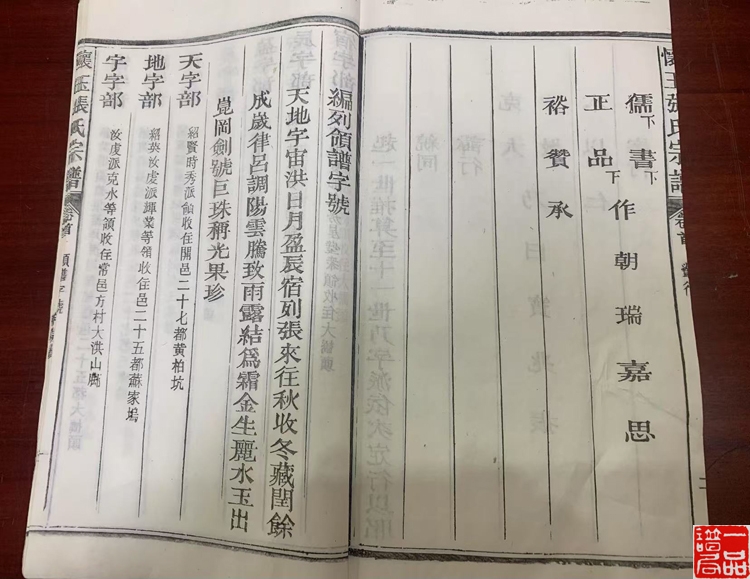 懷玉張氏宗譜 卷首
儒下書下作朝瑞嘉思
正品下
裕贊承
編列領譜字號
天地宇宙洪日月盈辰宿列張來往秋收冬藏閏餘
成歲律呂調陽雲騰致雨露結為霜金生麗水玉出
崑岡劍號巨珠稱光果珍
天字部
紹賢時秀派領收在開邑二十七都黃柏坑
地字部
紹英汝虔派輝業等領收在邑二十五都蘇家塢
宇字部
汝虞派克水等領收在常邑方村大洪山底
懷玉張氏宗譜 卷首 領譜字號
一品譜局